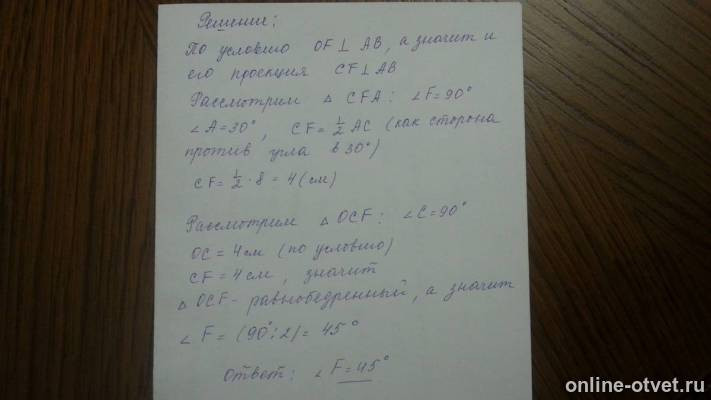 Решение:
По условию OF ⊥ AB, а значит и
его проекция CF ⊥ AB
Рассмотрим △ CFA: ∠F = 90°
∠A = 30°, CF = 1/2 AC (как сторона
против угла в 30°)
CF = 1/2 · 8 = 4 (см)
Рассмотрим △ OCF: ∠C = 90°
OC = 4 см (по условию)
CF = 4 см, значит
△ OCF - равнобедренный, а значит
∠ F = (90° : 2) = 45°
Ответ: ∠ F = 45°
online-otvet.ru